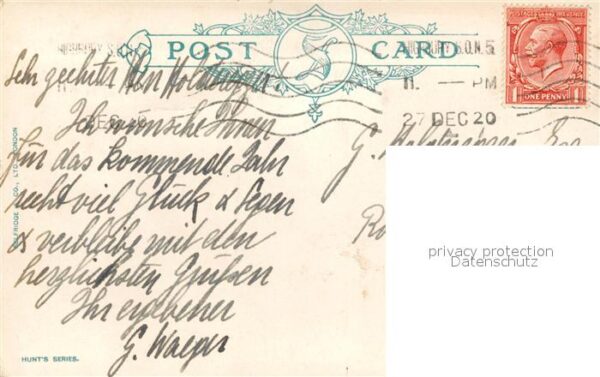 POST CARD
HIGHBURY S.O.N.5
11. — PM
27 DEC 20
POSTAGE REVENUE
ONE PENNY
Sehr geehrter Herr
Ich wünsche Ihnen
für das kommende Jahr
recht viel Glück & Segen
& verbleibe mit den
herzlichsten Grüßen
Ihr ergebener
G. Waeger
G.
Esq
privacy protection
Datenschutz
SELFRIDGE & CO., LTD. LONDON
HUNT'S SERIES.